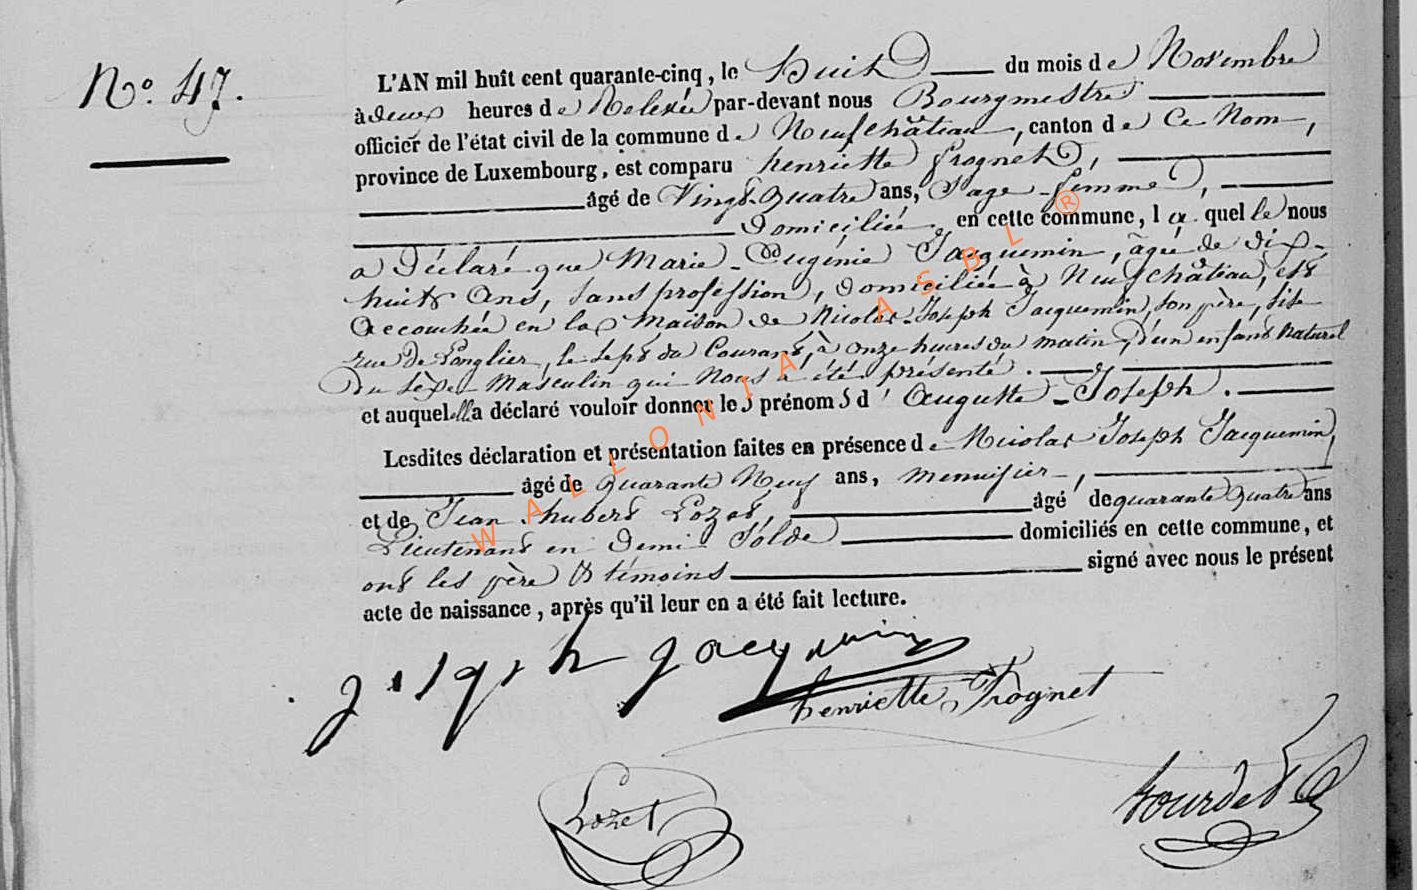 No. 47.
L'AN mil huit cent quarante-cinq, le huit du mois de Novembre
à deux heures de Relevée par-devant nous Bourgmestre
officier de l'état civil de la commune de Neufchâteau, canton de Ce Nom,
province de Luxembourg, est comparu henriette frognet,
âgé de Vingt-Quatre ans, Sage-femme,
Domiciliée en cette commune, laquelle nous
a Déclaré que Marie-Eugénie Jacquemin, âgée de dix-
huit Ans, sans profession, domiciliée à Neufchâteau, est
Accouchée en la Maison de Nicolas-Joseph Jacquemin, son père, sise
rue de Longlier, le sept du Courant, à onze heures du matin, d'un enfant Naturel
Du sèxe Masculin qui Nous a été présenté.
et auquel ella a déclaré vouloir donner les prénoms d'Auguste-Joseph.
Lesdites déclaration et présentation faites en présence de Nicolas Joseph Jacquemin,
âgé de quarante Neuf ans, menuisier,
et de Jean hubert Lozet, âgé de quarante Quatre ans
Lieutenant en Demi Solde domiciliés en cette commune, et
ont les père & témoins signé avec nous le présent
acte de naissance, après qu'il leur en a été fait lecture.
joseph jacquemin
henriette Frognet
Lozet
Bourdet
WALLONIA ASBL ®